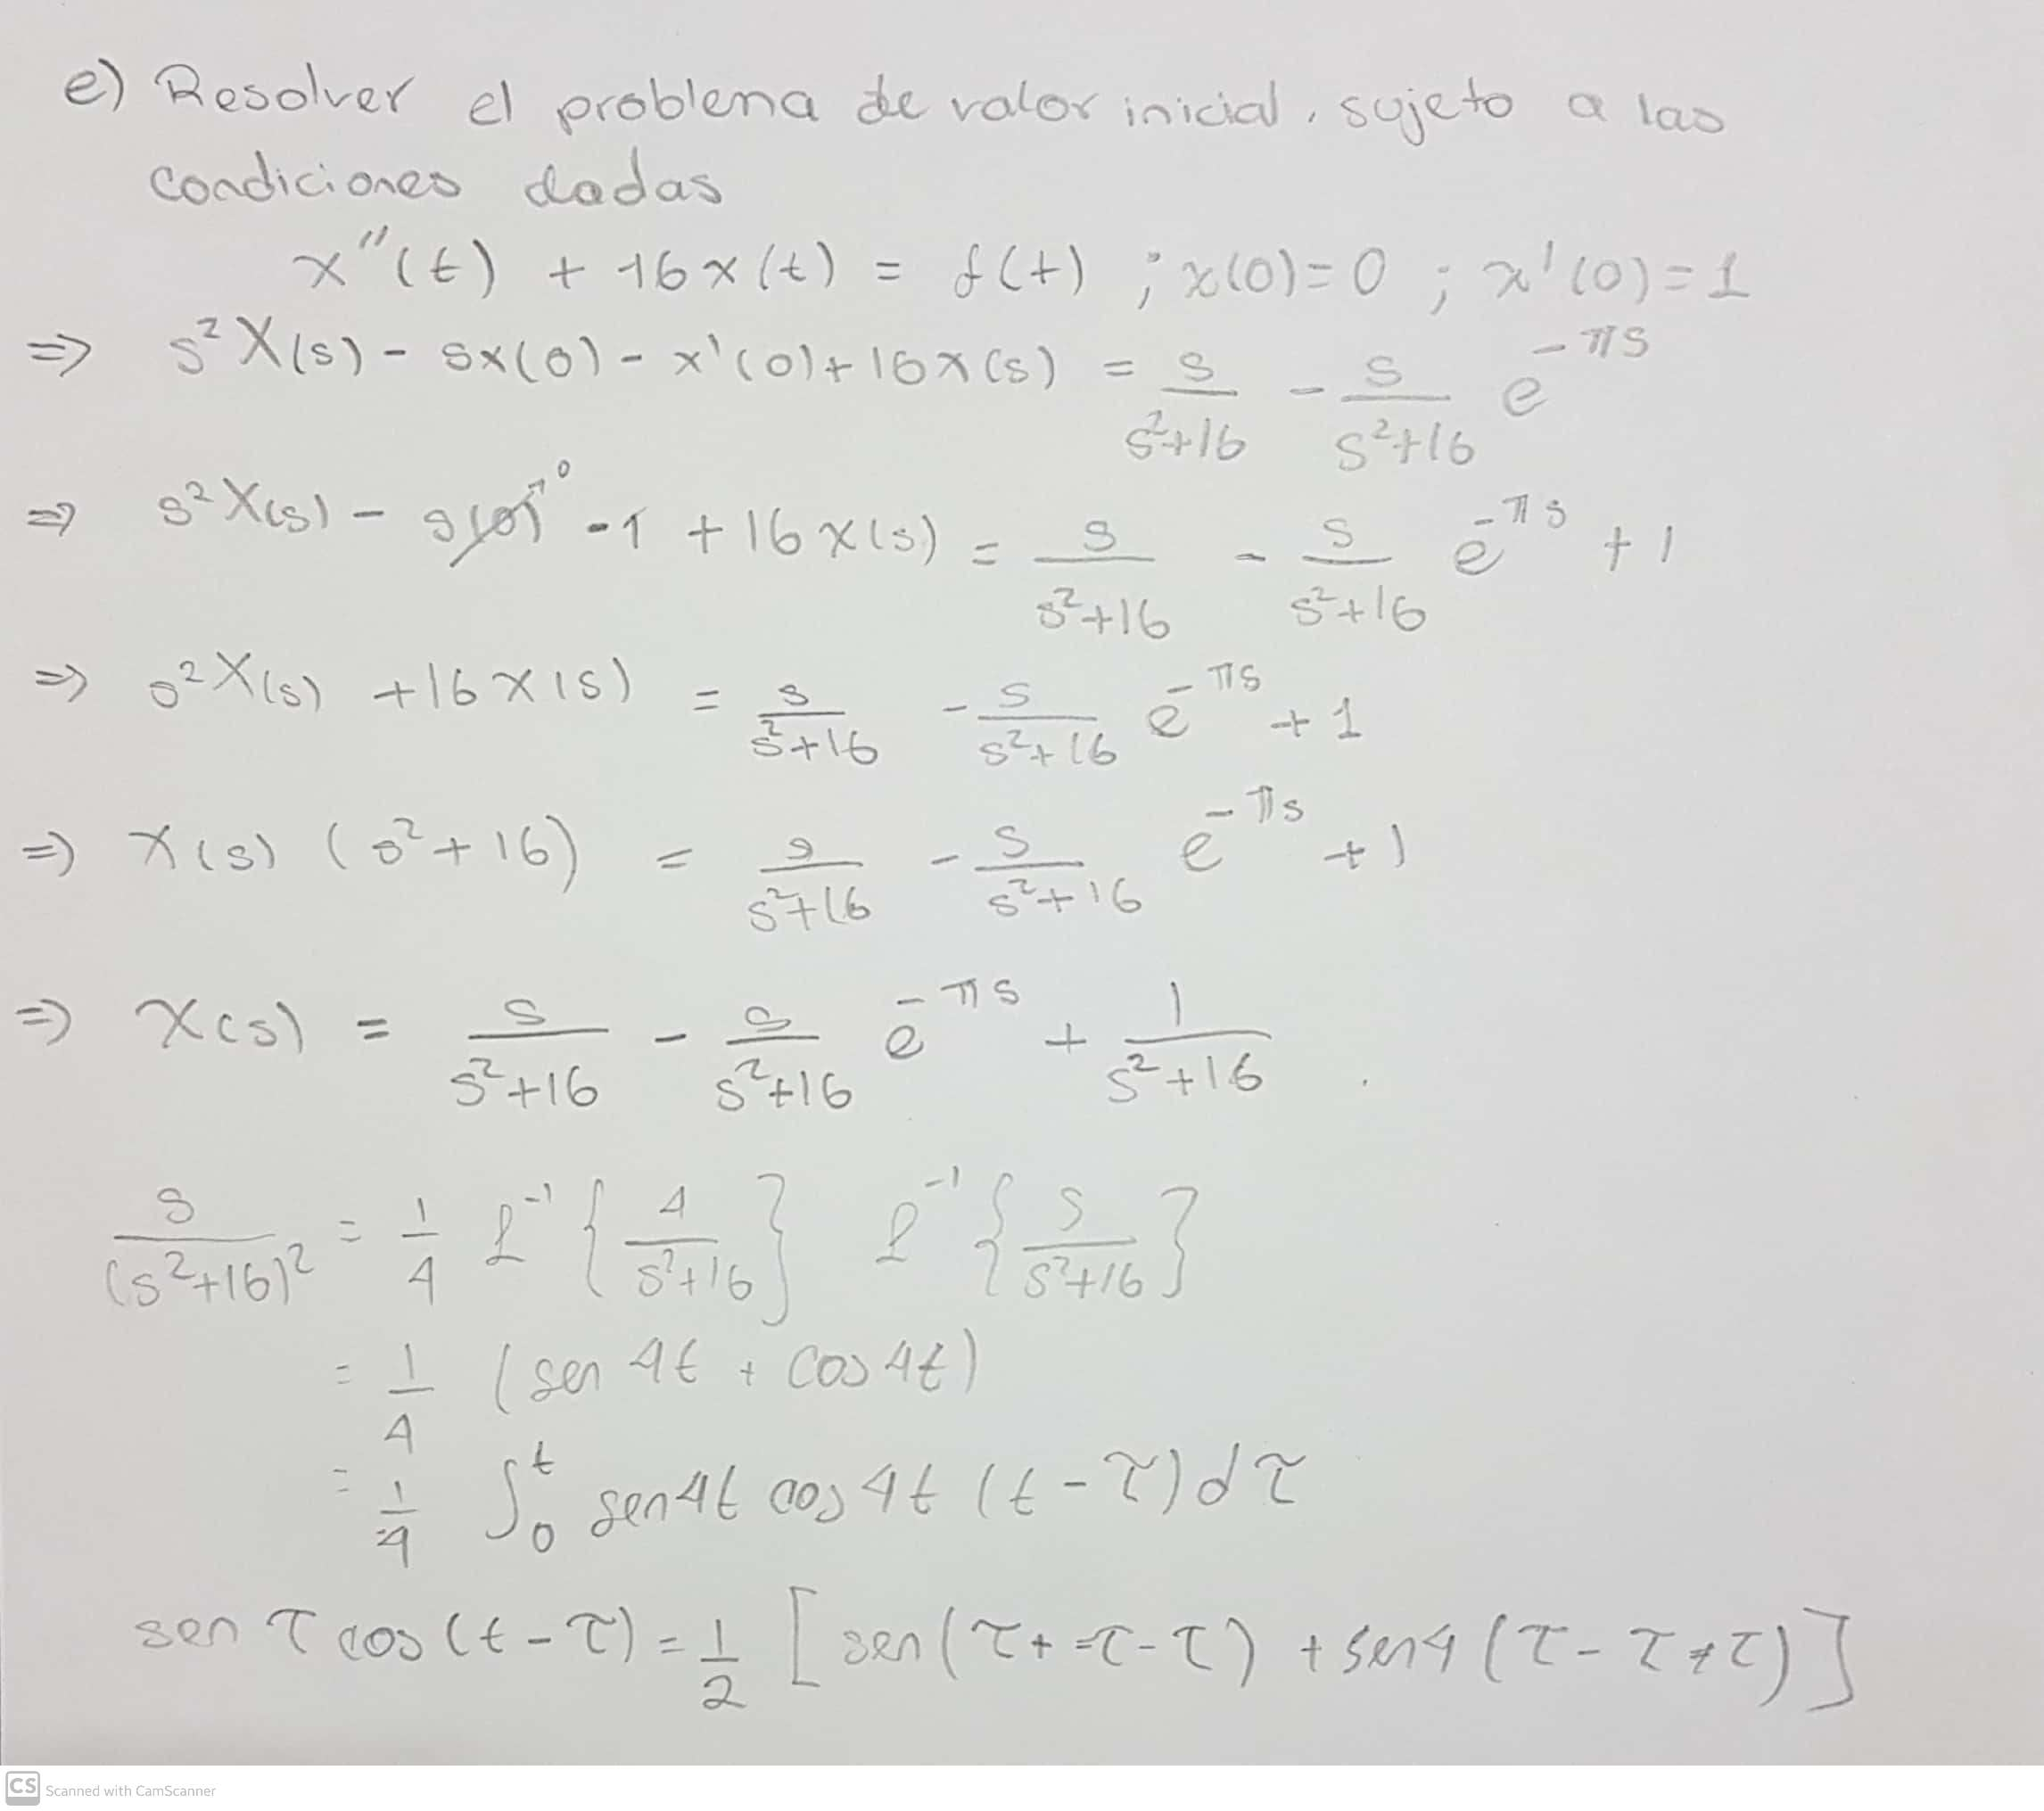 e) Resolver el problema de valor inicial, sujeto a las
condiciones dadas
x''(t) + 16x(t) = f(t) ; x(0)=0 ; x'(0)=1
=> s²X(s) - sx(0) - x'(0)+16x(s) = s/(s²+16) - s/(s²+16) e^(-πs)
=> s²X(s) - s(0) 0 -1 + 16x(s) = s/(s²+16) - s/(s²+16) e^(-πs) + 1
=> s²X(s) +16x(s) = s/(s²+16) - s/(s²+16) e^(-πs) + 1
=> X(s) (s²+16) = s/(s²+16) - s/(s²+16) e^(-πs) + 1
=> X(s) = s/(s²+16) - s/(s²+16) e^(-πs) + 1/(s²+16)
s/(s²+16)² = 1/4 ℒ⁻¹{4/(s²+16)} ℒ⁻¹{s/(s²+16)}
= 1/4 (sen 4t + cos 4t)
= 1/4 ∫₀ᵗ sen4t cos 4t (t-τ)dτ
sen τ cos(t-τ) = 1/2 [sen(τ+-τ-τ) + sen4(τ-τ+τ)]
CS Scanned with CamScanner